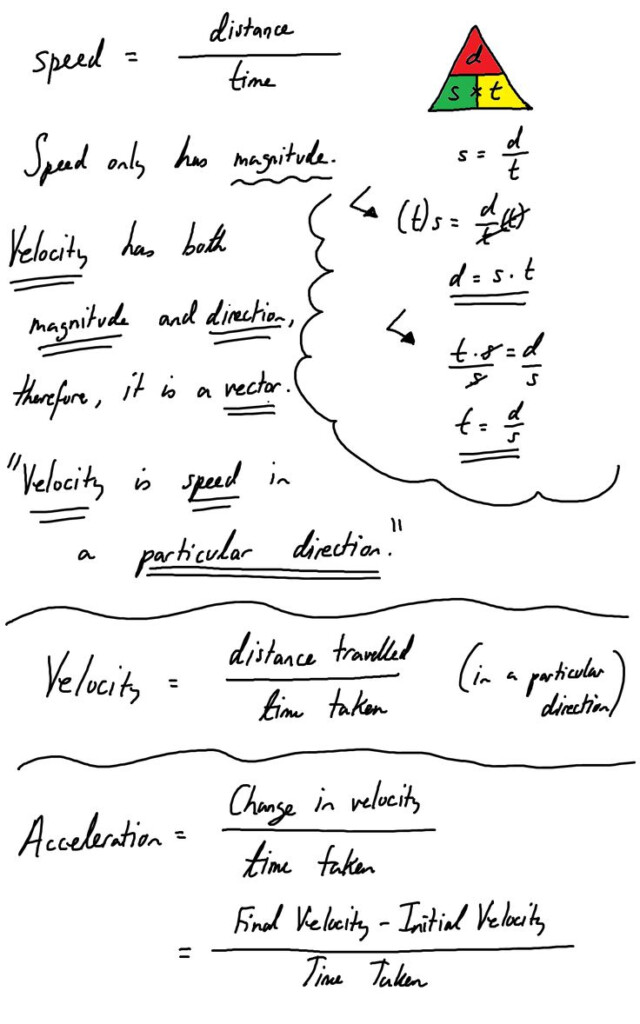 speed = distance / time
Speed only has magnitude.
Velocity has both
magnitude and direction,
therefore, it is a vector.
"Velocity is speed in
a particular direction."
d
s × t
s = d/t
(t)s = d/t (t)
d = s · t
t · s / s = d/s
t = d/s
Velocity = distance travelled / time taken (in a particular
direction)
Acceleration = Change in velocity / time taken
= Final Velocity - Initial Velocity / Time Taken